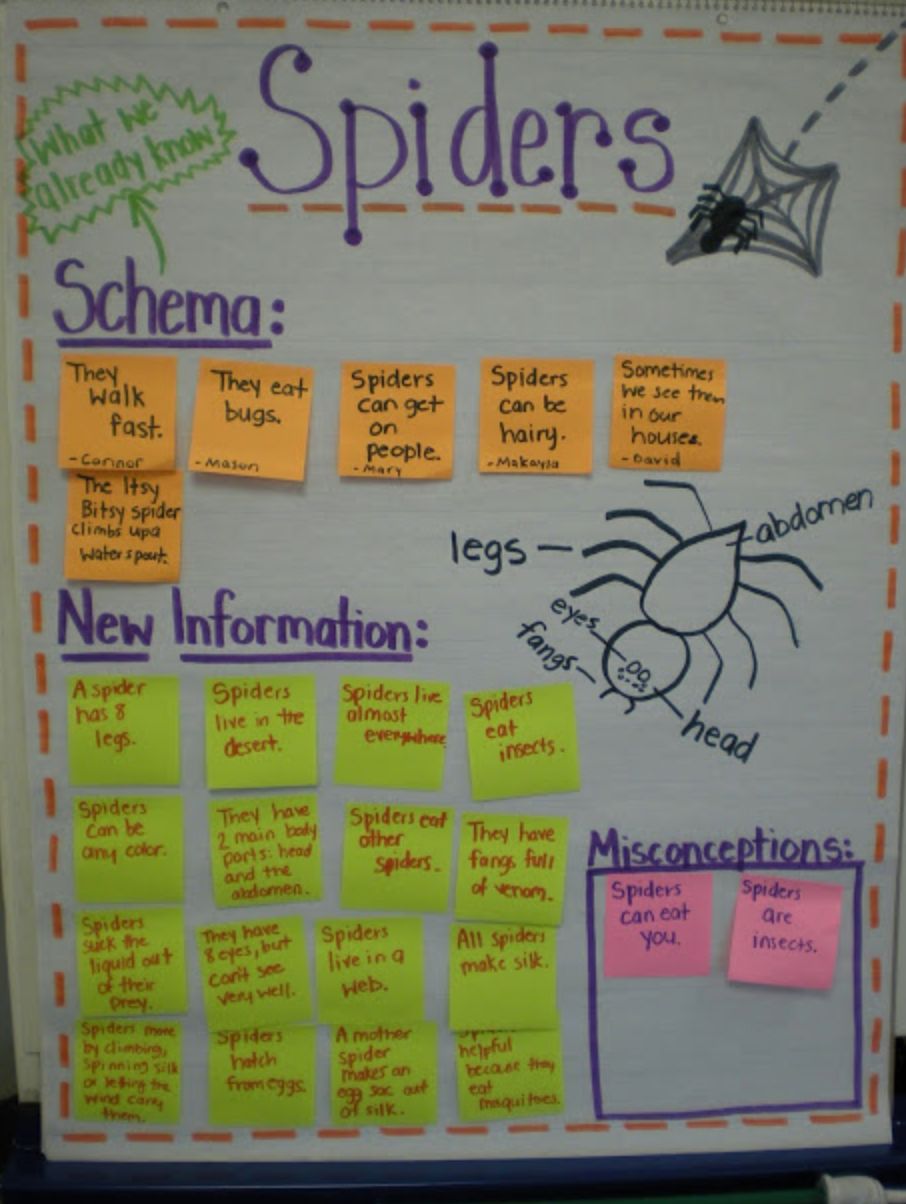 Spiders
What we
already know
Schema:
They
walk
fast.
-Connor
They eat
bugs.
-Mason
Spiders
can get
on
people.
-Mary
Spiders
can be
hairy.
-Makayla
Sometimes
we see them
in our
houses.
-David
The Itsy
Bitsy spider
climbs up a
water spout.
legs
abdomen
eyes
fangs
head
New Information:
A spider
has 8
legs.
Spiders
live in the
desert.
Spiders live
almost
everywhere
Spiders
eat
insects.
Spiders
can be
any color.
They have
2 main body
parts: head
and the
abdomen.
Spiders eat
other
spiders.
They have
fangs full
of venom.
Spiders
suck the
liquid out
of their
prey.
They have
8 eyes, but
can't see
very well.
Spiders
live in a
web.
All spiders
make silk.
Spiders move
by climbing,
spinning silk
or letting the
wind carry
them.
Spiders
hatch
from eggs.
A mother
spider
makes an
egg sac out
of silk.
helpful
because they
eat
mosquitoes.
Misconceptions:
Spiders
can eat
you.
Spiders
are
insects.